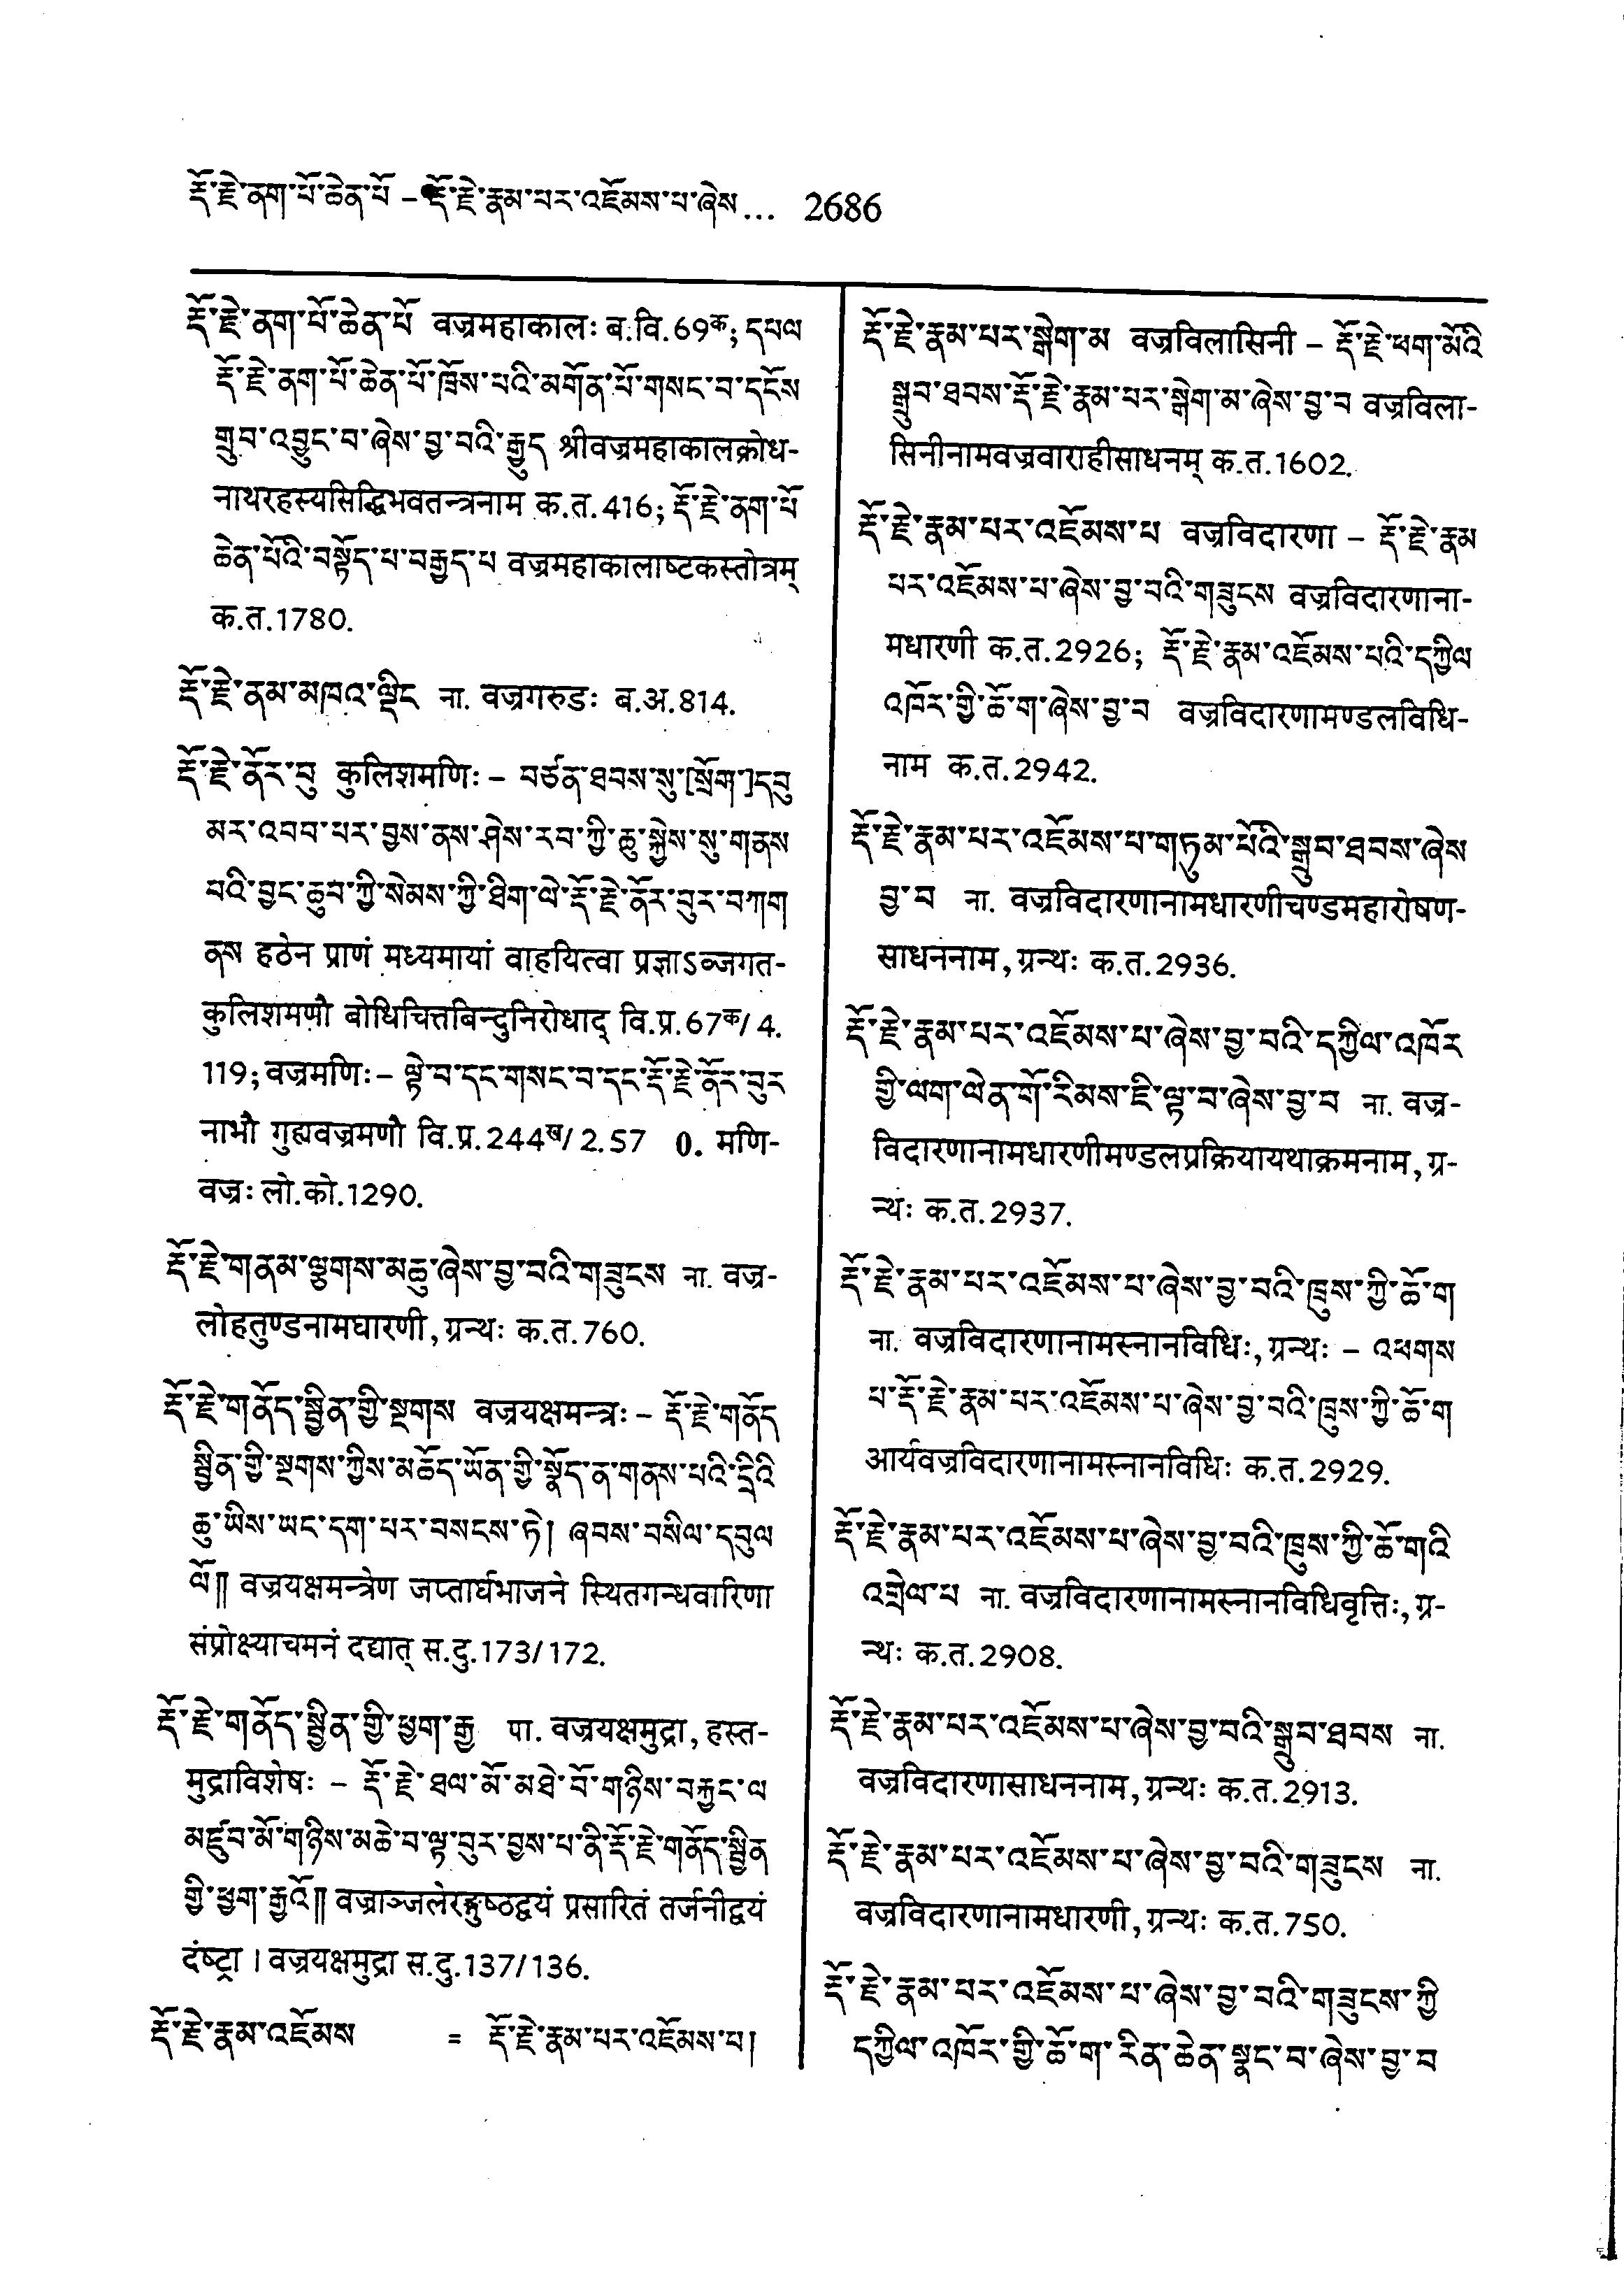 རྡོ་རྗེ་ནག་པོ་ཆེན་པོ – རྡོ་རྗེ་རྣམ་པར་འཇོམས་པ་ཞེས... 2686
རྡོ་རྗེ་ནག་པོ་ཆེན་པོ वज्रमहाकालः ब.वि.69क; དཔལ
རྡོ་རྗེ་ནག་པོ་ཆེན་པོ་ཁྲོས་པའི་མགོན་པོ་གསང་བ་དངོས
གྲུབ་འབྱུང་བ་ཞེས་བྱ་བའི་རྒྱུད श्रीवज्रमहाकालक्रोध-
नाथरहस्यसिद्धिभवतन्त्रनाम क.त.416; རྡོ་རྗེ་ནག་པོ
ཆེན་པོའི་བསྟོད་པ་བརྒྱད་པ वज्रमहाकालाष्टकस्तोत्रम्
क.त.1780.
རྡོ་རྗེ་ནམ་མཁའ་ལྡིང ना. वज्रगरुडः ब.अ.814.
རྡོ་རྗེ་ནོར་བུ कुलिशमणिः – བཙན་ཐབས་སུ་[སྲོག་]དབུ
མར་འབབ་པར་བྱས་ནས་ཤེས་རབ་ཀྱི་ཆུ་སྐྱེས་སུ་གནས
པའི་བྱང་ཆུབ་ཀྱི་སེམས་ཀྱི་ཐིག་ལེ་རྡོ་རྗེ་ནོར་བུར་བཀག
ནས हठेन प्राणं मध्यमायां वाहयित्वा प्रज्ञाऽब्जगत-
कुलिशमणौ बोधिचित्तबिन्दुनिरोधाद् वि.प्र.67क/4.
119; वज्रमणिः – ལྟེ་བ་དང་གསང་བ་དང་རྡོ་རྗེ་ནོར་བུར
नाभौ गुह्यवज्रमणौ वि.प्र.244ख/2.57 0. मणि-
वज्रः लो.को.1290.
རྡོ་རྗེ་གནམ་ལྕགས་མཆུ་ཞེས་བྱ་བའི་གཟུངས ना. वज्र-
लोहतुण्डनामधारणी, ग्रन्थः क.त.760.
རྡོ་རྗེ་གནོད་སྦྱིན་གྱི་སྔགས वज्रयक्षमन्त्रः – རྡོ་རྗེ་གནོད
སྦྱིན་གྱི་སྔགས་ཀྱིས་མཆོད་ཡོན་གྱི་སྣོད་ན་གནས་པའི་དྲིའི
ཆུ་ཡིས་ཡང་དག་པར་བསངས་ཏེ། ཞབས་བསིལ་དབུལ
ལོ༎ वज्रयक्षमन्त्रेण जप्तार्घभाजने स्थितगन्धवारिणा
संप्रोक्ष्याचमनं दद्यात् स.दु.173/172.
རྡོ་རྗེ་གནོད་སྦྱིན་གྱི་ཕྱག་རྒྱ पा. वज्रयक्षमुद्रा, हस्त-
मुद्राविशेषः – རྡོ་རྗེ་ཐལ་མོ་མཐེ་བོ་གཉིས་བརྐྱང་ལ
མཛུབ་མོ་གཉིས་མཆེ་བ་ལྟ་བུར་བྱས་པ་ནི་རྡོ་རྗེ་གནོད་སྦྱིན
གྱི་ཕྱག་རྒྱའོ༎ वज्राञ्जलेरङ्गुष्ठद्वयं प्रसारितं तर्जनीद्वयं
दंष्ट्रा । वज्रयक्षमुद्रा स.दु.137/136.
རྡོ་རྗེ་རྣམ་འཇོམས = རྡོ་རྗེ་རྣམ་པར་འཇོམས་པ།
རྡོ་རྗེ་རྣམ་པར་སྒེག་མ वज्रविलासिनी – རྡོ་རྗེ་ཕག་མོའི
སྒྲུབ་ཐབས་རྡོ་རྗེ་རྣམ་པར་སྒེག་མ་ཞེས་བྱ་བ वज्रविला-
सिनीनामवज्रवाराहीसाधनम् क.त.1602.
རྡོ་རྗེ་རྣམ་པར་འཇོམས་པ वज्रविदारणा – རྡོ་རྗེ་རྣམ
པར་འཇོམས་པ་ཞེས་བྱ་བའི་གཟུངས वज्रविदारणाना-
मधारणी क.त.2926; རྡོ་རྗེ་རྣམ་འཇོམས་པའི་དཀྱིལ
འཁོར་གྱི་ཆོ་ག་ཞེས་བྱ་བ वज्रविदारणामण्डलविधि-
नाम क.त.2942.
རྡོ་རྗེ་རྣམ་པར་འཇོམས་པ་གཏུམ་པོའི་སྒྲུབ་ཐབས་ཞེས
བྱ་བ ना. वज्रविदारणानामधारणीचण्डमहारोषण-
साधननाम, ग्रन्थः क.त.2936.
རྡོ་རྗེ་རྣམ་པར་འཇོམས་པ་ཞེས་བྱ་བའི་དཀྱིལ་འཁོར
གྱི་ལག་ལེན་གོ་རིམས་ཇི་ལྟ་བ་ཞེས་བྱ་བ ना. वज्र-
विदारणानामधारणीमण्डलप्रक्रियायथाक्रमनाम, ग्र-
न्थः क.त.2937.
རྡོ་རྗེ་རྣམ་པར་འཇོམས་པ་ཞེས་བྱ་བའི་ཁྲུས་ཀྱི་ཆོ་ག
ना. वज्रविदारणानामस्नानविधिः, ग्रन्थः – འཕགས
པ་རྡོ་རྗེ་རྣམ་པར་འཇོམས་པ་ཞེས་བྱ་བའི་ཁྲུས་ཀྱི་ཆོ་ག
आर्यवज्रविदारणानामस्नानविधिः क.त.2929.
རྡོ་རྗེ་རྣམ་པར་འཇོམས་པ་ཞེས་བྱ་བའི་ཁྲུས་ཀྱི་ཆོ་གའི
འགྲེལ་པ ना. वज्रविदारणानामस्नानविधिवृत्तिः, ग्र-
न्थः क.त.2908.
རྡོ་རྗེ་རྣམ་པར་འཇོམས་པ་ཞེས་བྱ་བའི་སྒྲུབ་ཐབས ना.
वज्रविदारणासाधननाम, ग्रन्थः क.त.2913.
རྡོ་རྗེ་རྣམ་པར་འཇོམས་པ་ཞེས་བྱ་བའི་གཟུངས ना.
वज्रविदारणानामधारणी, ग्रन्थः क.त.750.
རྡོ་རྗེ་རྣམ་པར་འཇོམས་པ་ཞེས་བྱ་བའི་གཟུངས་ཀྱི
དཀྱིལ་འཁོར་གྱི་ཆོ་ག་རིན་ཆེན་སྣང་བ་ཞེས་བྱ་བ